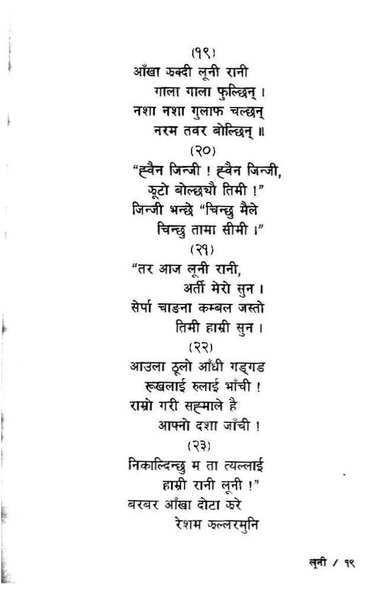 (१९)
आँखा झक्दी लूनी रानी
गाला गाला फुल्छिन् ।
नशा नशा गुलाफ चल्छन्
नरम तवर बोल्छिन् ॥
(२०)
“ह्वैन जिन्जी ! ह्वैन जिन्जी,
झूटो बोल्छ्यौ तिमी !”
जिन्जी भन्छे “चिन्छु मैले
चिन्छु तामा सीमी ।”
(२१)
“तर आज लूनी रानी,
अर्ती मेरो सुन ।
सेर्पा चाङना कम्बल जस्तो
तिमी हाम्री सुन ।
(२२)
आउला ठूलो आँधी गड्गड
रूखलाई रुलाई भाँची !
राम्रो गरी सह्माले है
आफ्नो दशा जाँची !
(२३)
निकाल्दिन्छु म ता त्यल्लाई
हाम्री रानी लूनी !”
बरबर आँखा दोटा झरे
रेशम झल्लरमुनि
लूनी / १९